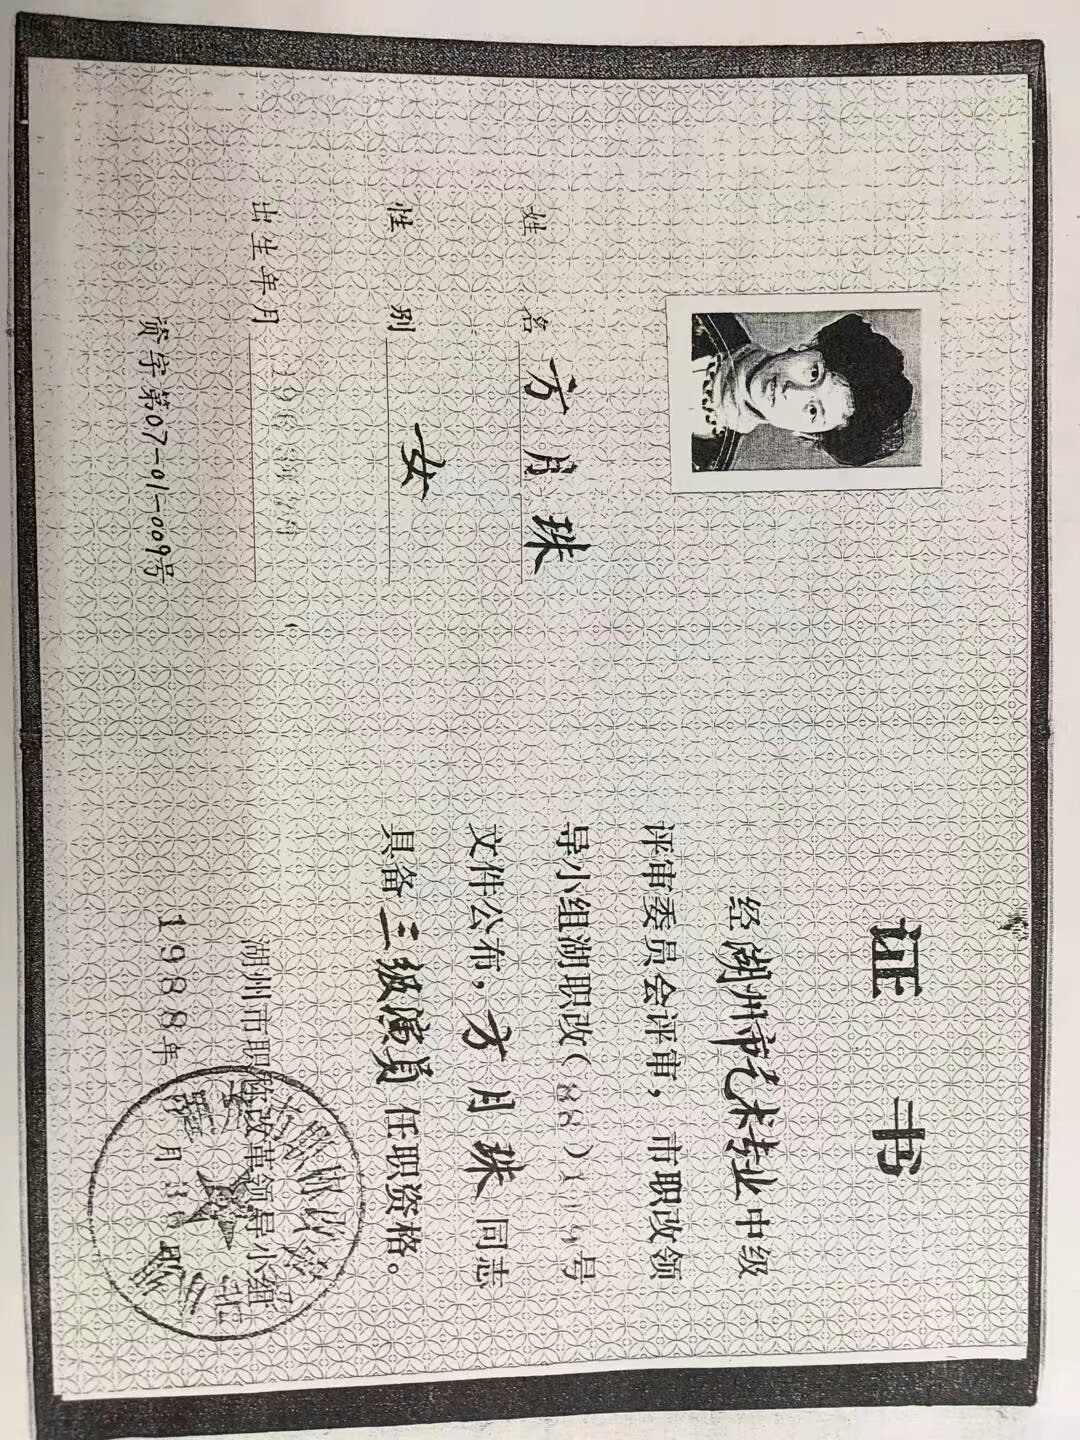 姓 名 方月珠
性 别 女
出生年月
资字第07-01-009号
证 书
经湖州市艺术专业中级
评审委员会评审，市职改领
导小组湖职改(88)
号
文件公布，方月珠同志
具备三级演员任职资格。
湖州市职称改革领导小组
1988年 月